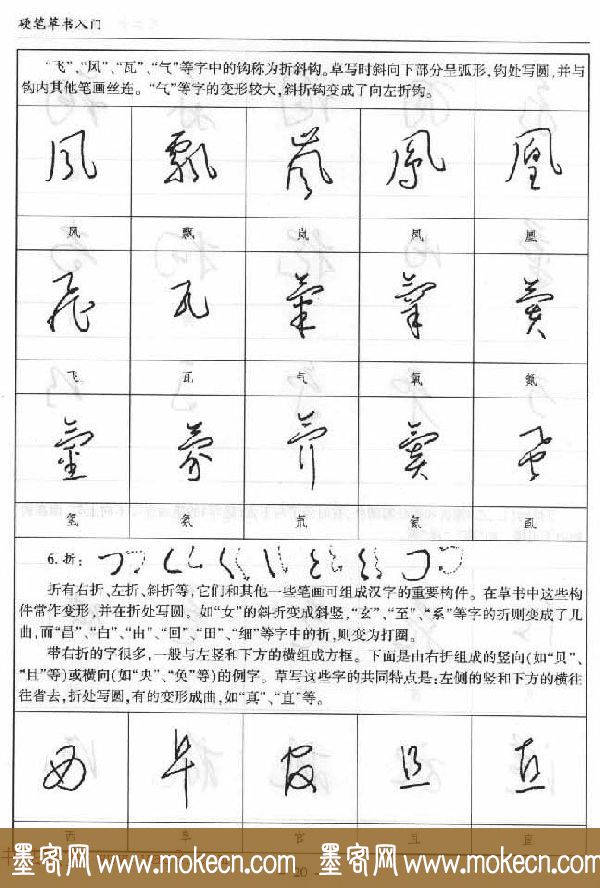 硬笔草书入门
“飞”、“风”、“瓦”、“气”等字中的钩称为折斜钩。草写时斜向下部分呈弧形,钩处写圆,并与
钩内其他笔画丝连。“气”等字的变形较大,斜折钩变成了向左折钩。
风 飘 岚 凤 凰
风 飘 岚 凤 凰
飞 瓦 气 氧 氮
飞 瓦 气 氧 氮
氢 氛 氘 氦 虱
氢 氛 氘 氦 虱
6.折:
折有右折、左折、斜折等,它们和其他一些笔画可组成汉字的重要构件。在草书中这些构
件常作变形,并在折处写圆。如“女”的斜折变成斜竖,“玄”、“至”、“系”等字的折则变成了几
曲,而“昌”、“白”、“由”、“回”、“田”、“细”等字中的折,则变为打圈。
带右折的字很多,一般与左竖和下方的横组成方框。下面是由右折组成的竖向(如“贝”、
“且”等)或横向(如“央”、“免”等)的例字。草写这些字的共同特点是:左侧的竖和下方的横往
往省去,折处写圆,有的变形成曲,如“真”、“直”等。
西 阜 官 且 直
西 阜 官 且 直
墨客网 www.mokecn.com 墨客网 www.mokecn.com
20